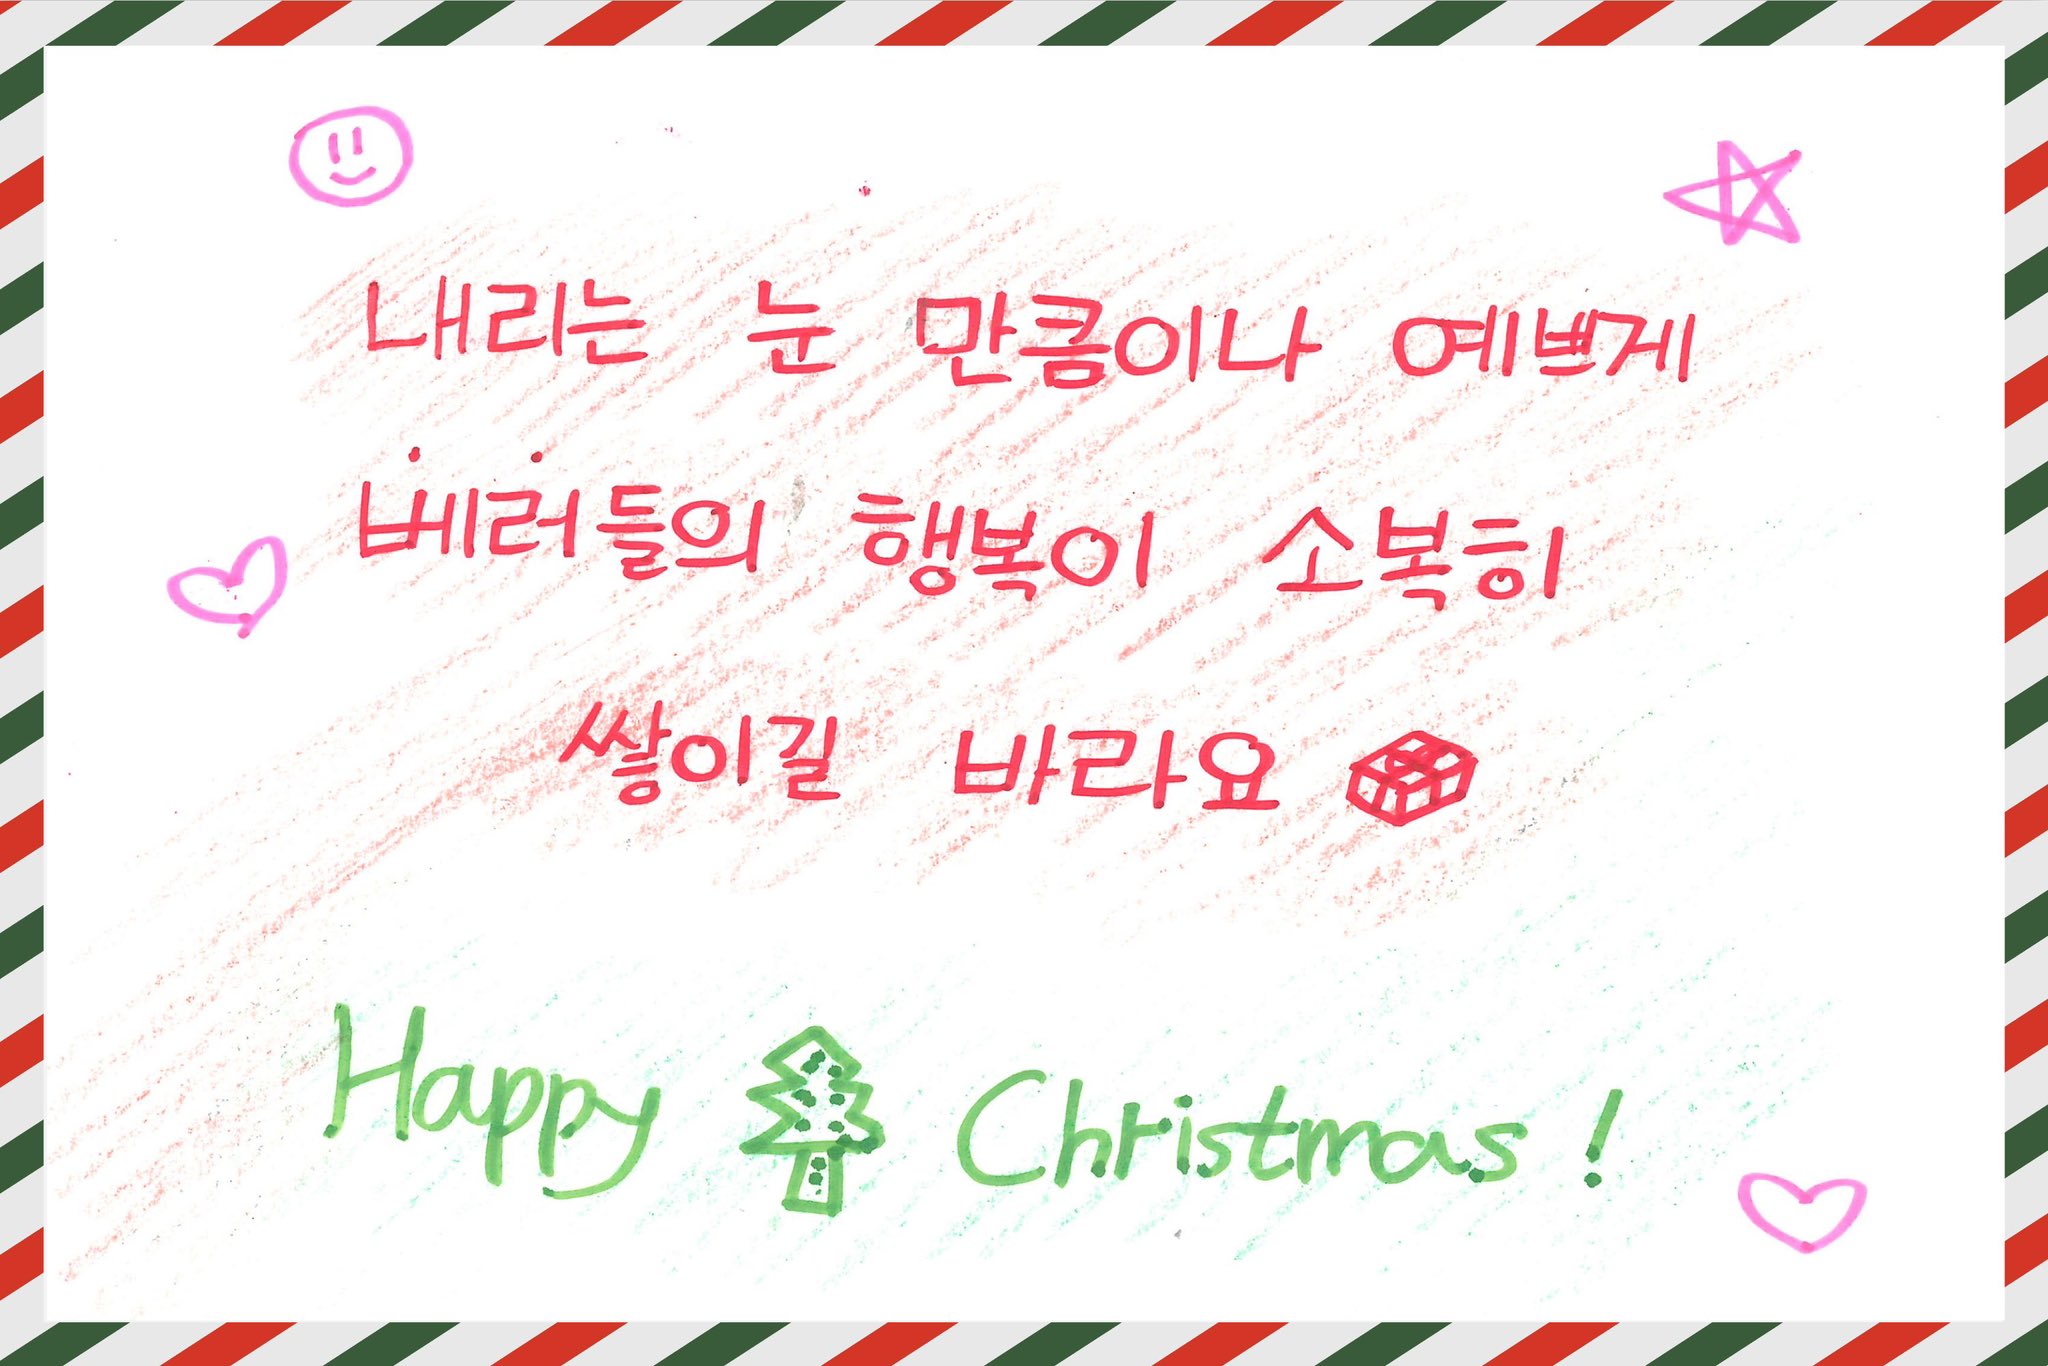 내리는 눈 만큼이나 예쁘게
베러들의 행복이 소복히
쌓이길 바라요
Happy Christmas !